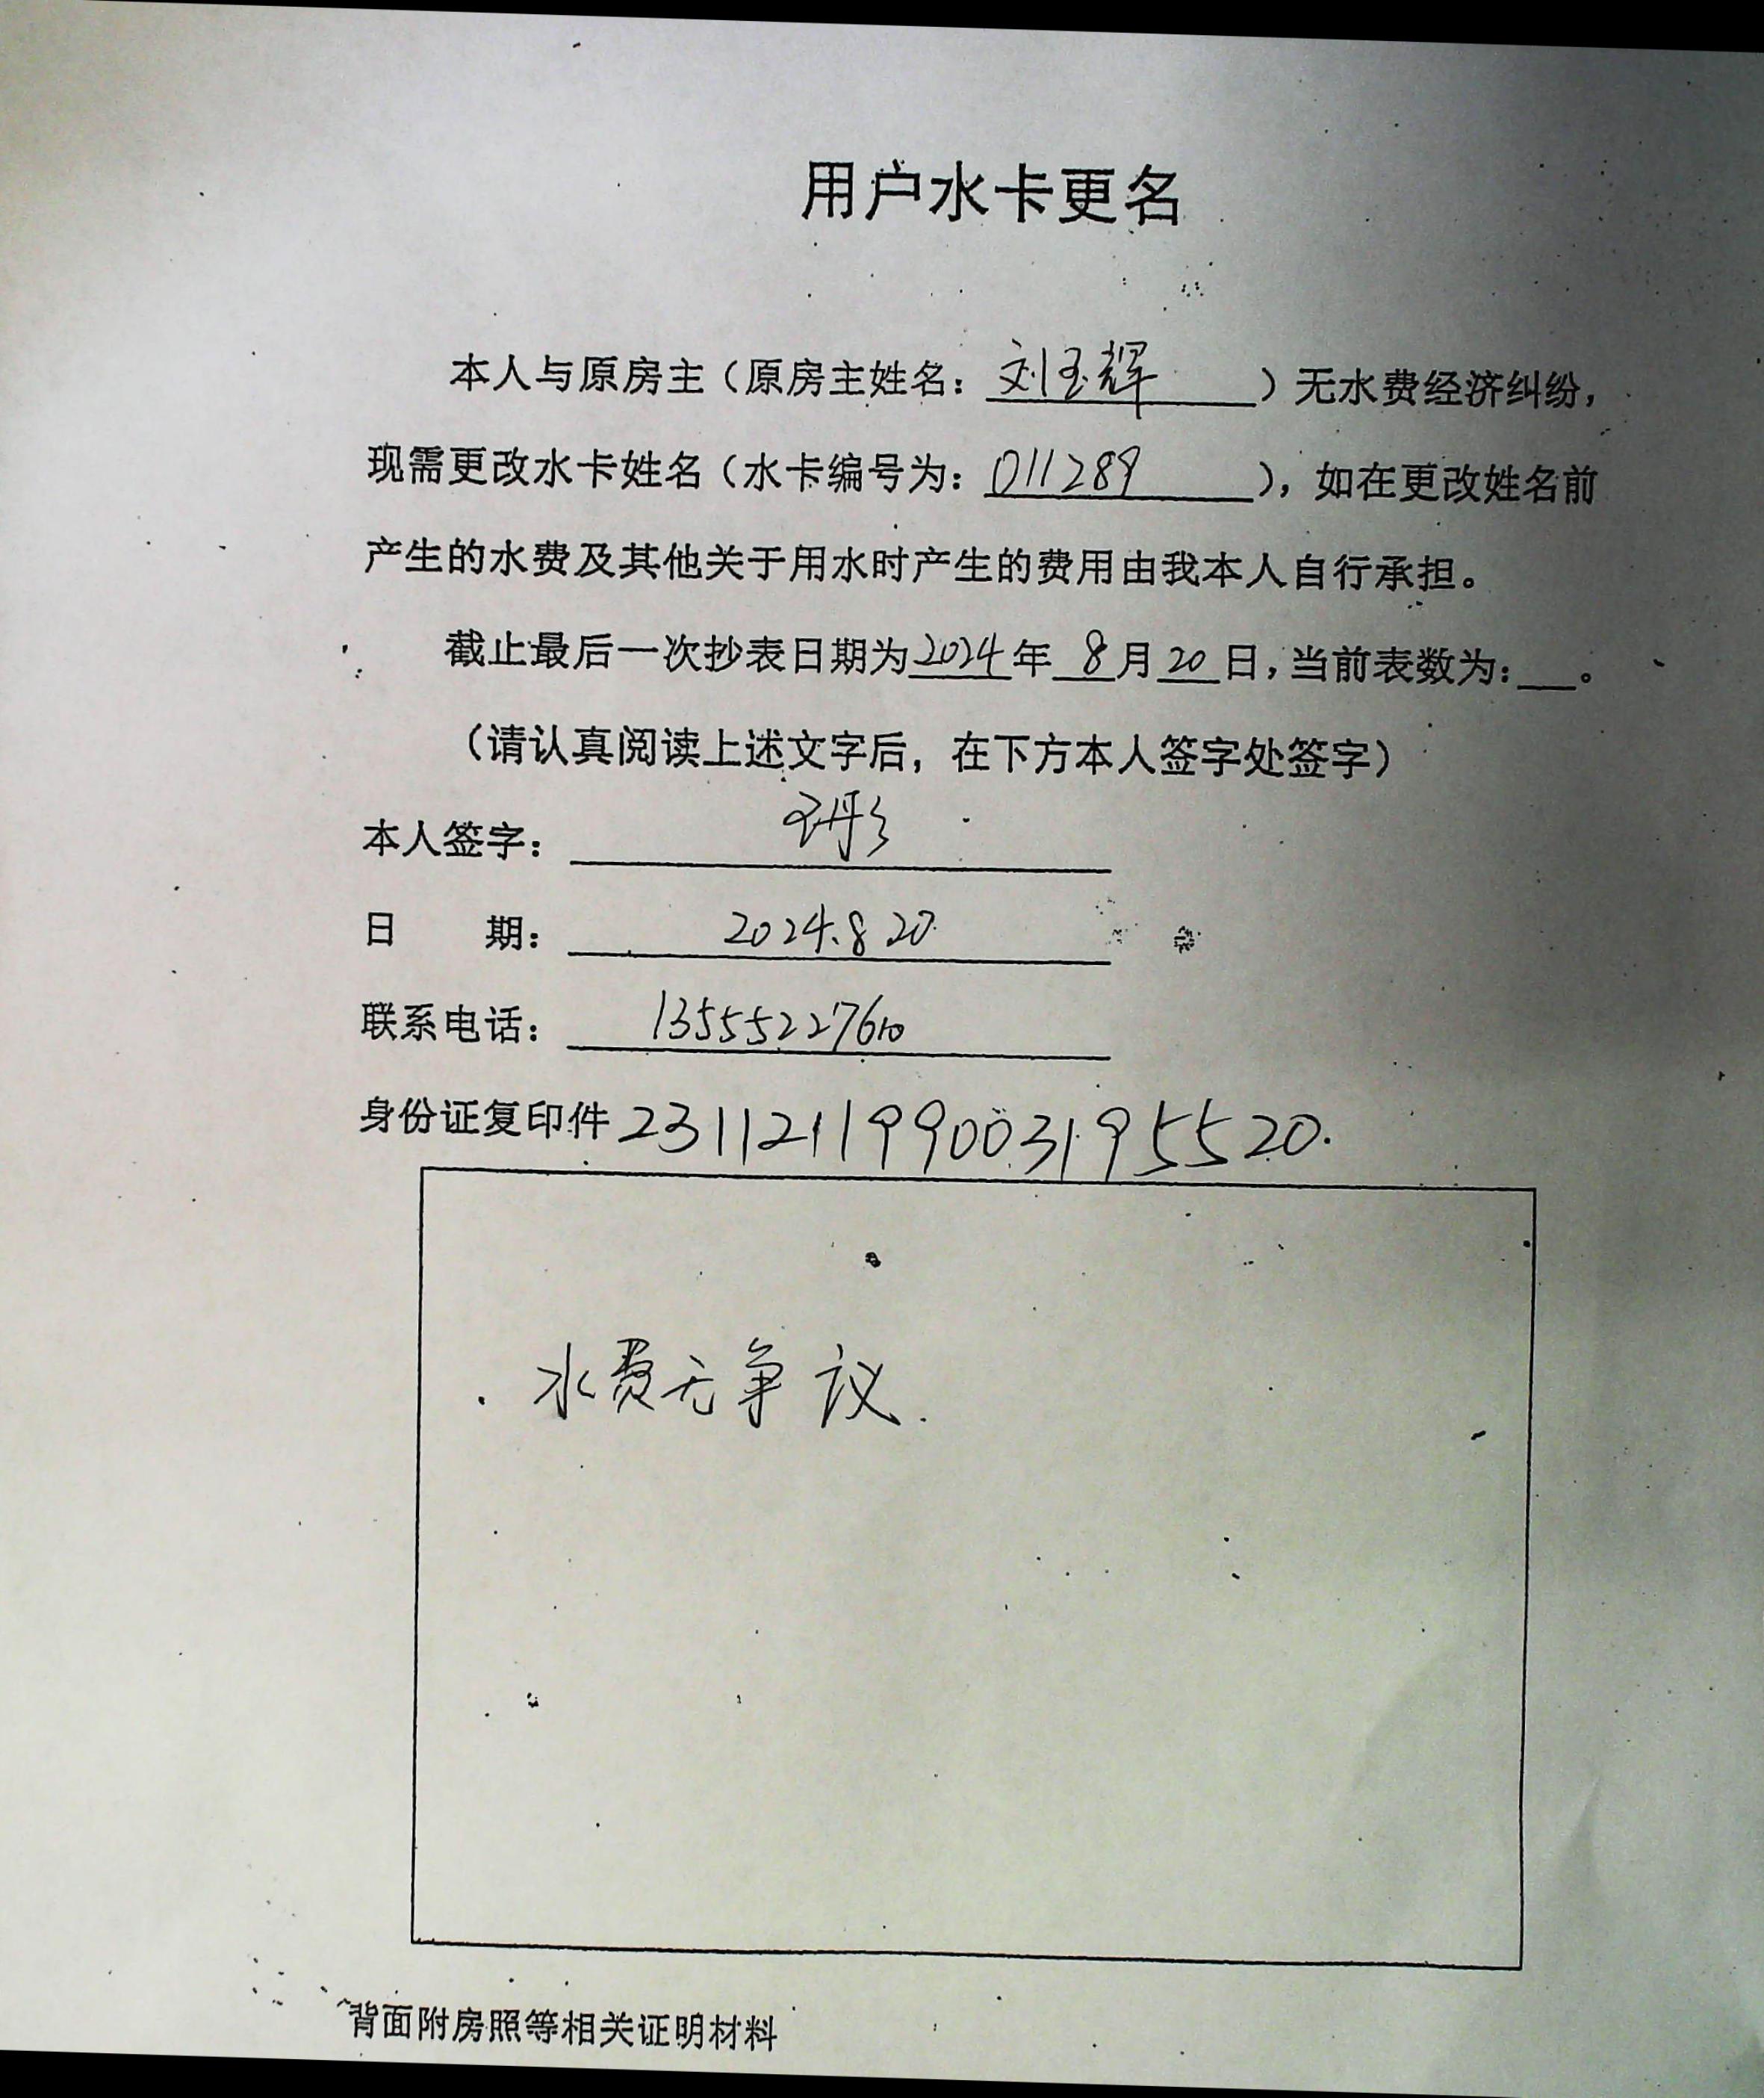 用户水卡更名
本人与原房主（原房主姓名：刘玉辉）无水费经济纠纷，
现需更改水卡姓名（水卡编号为：011289），如在更改姓名前
产生的水费及其他关于用水时产生的费用由我本人自行承担。
截止最后一次抄表日期为2024年8月20日，当前表数为：。
（请认真阅读上述文字后，在下方本人签字处签字）
本人签字：
日 期：2024.8.20
联系电话：13555227610
身份证复印件 231121199003195520.
水费无争议.
背面附房照等相关证明材料